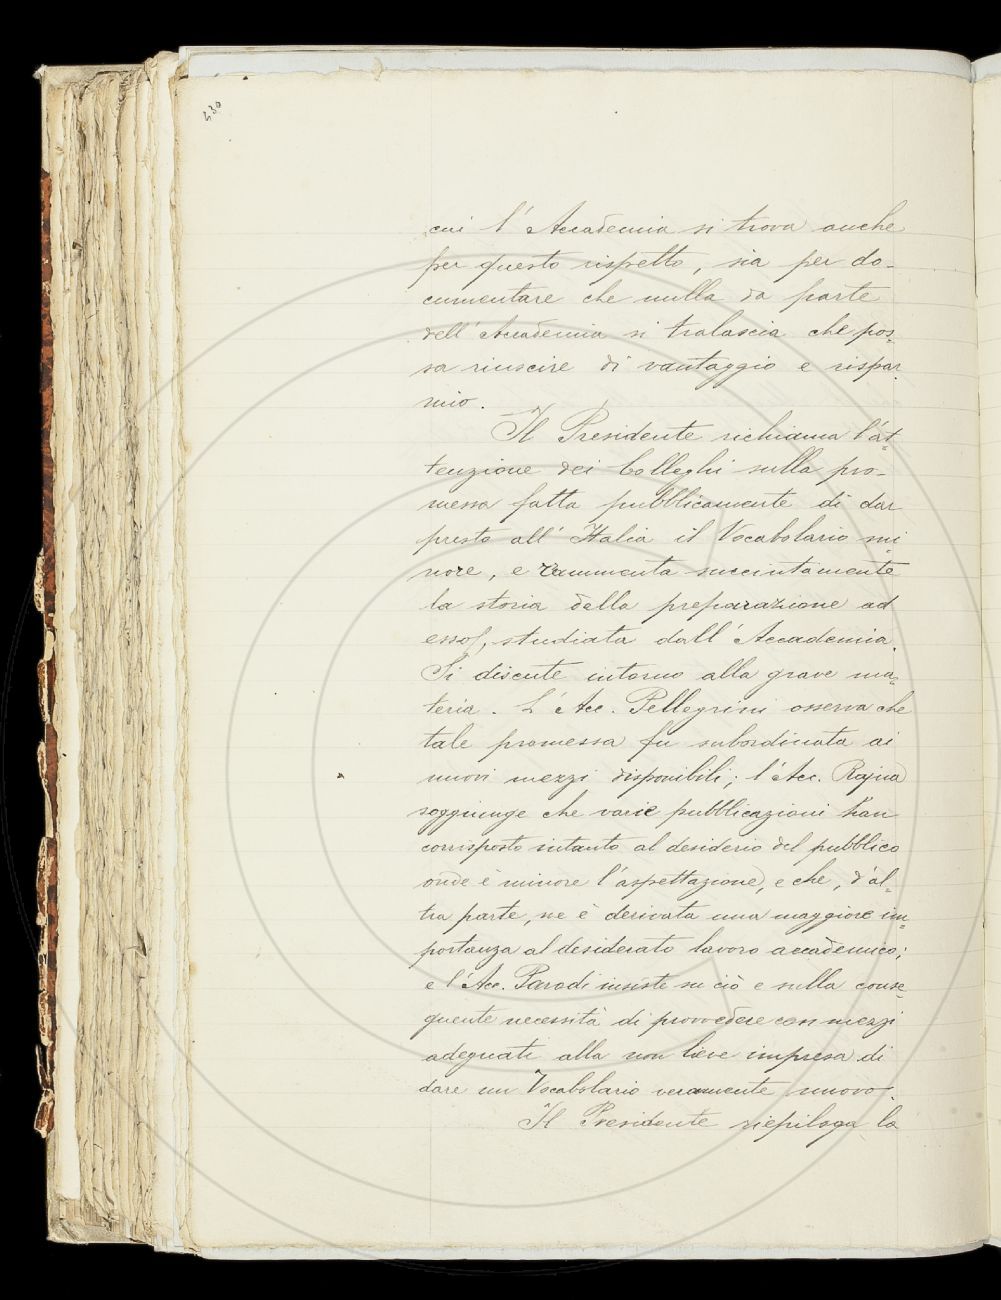 430
cui l'Accademia si trova anche
per questo rispetto, sia per do-
cumentare che nulla da parte
dell'Accademia si tralascia che pos-
sa riuscire di vantaggio e rispar-
mio.
Il Presidente richiama l'at-
tenzione dei Colleghi sulla pro-
messa fatta pubblicamente di dar
presto all'Italia il Vocabolario mi
nore, e rammenta succintamente
la storia della preparazione ad
esso, studiata dall'Accademia.
Si discute intorno alla grave ma-
teria. L'Acc. Pellegrini osserva che
tale promessa fu subordinata ai
nuovi mezzi disponibili; l'Acc. Rajna
soggiunge che varie pubblicazioni han
corrisposto intanto al desiderio del pubblico
onde è minore l'aspettazione, e che, d'al-
tra parte, ne è derivata una maggiore im-
portanza al desiderato lavoro accademico;
e l'Acc. Parodi insiste su ciò e sulla conse-
quente necessità di provvedere con mezzi
adeguati alla non lieve impresa di
dare un Vocabolario veramente nuovo.
Il Presidente riepiloga la